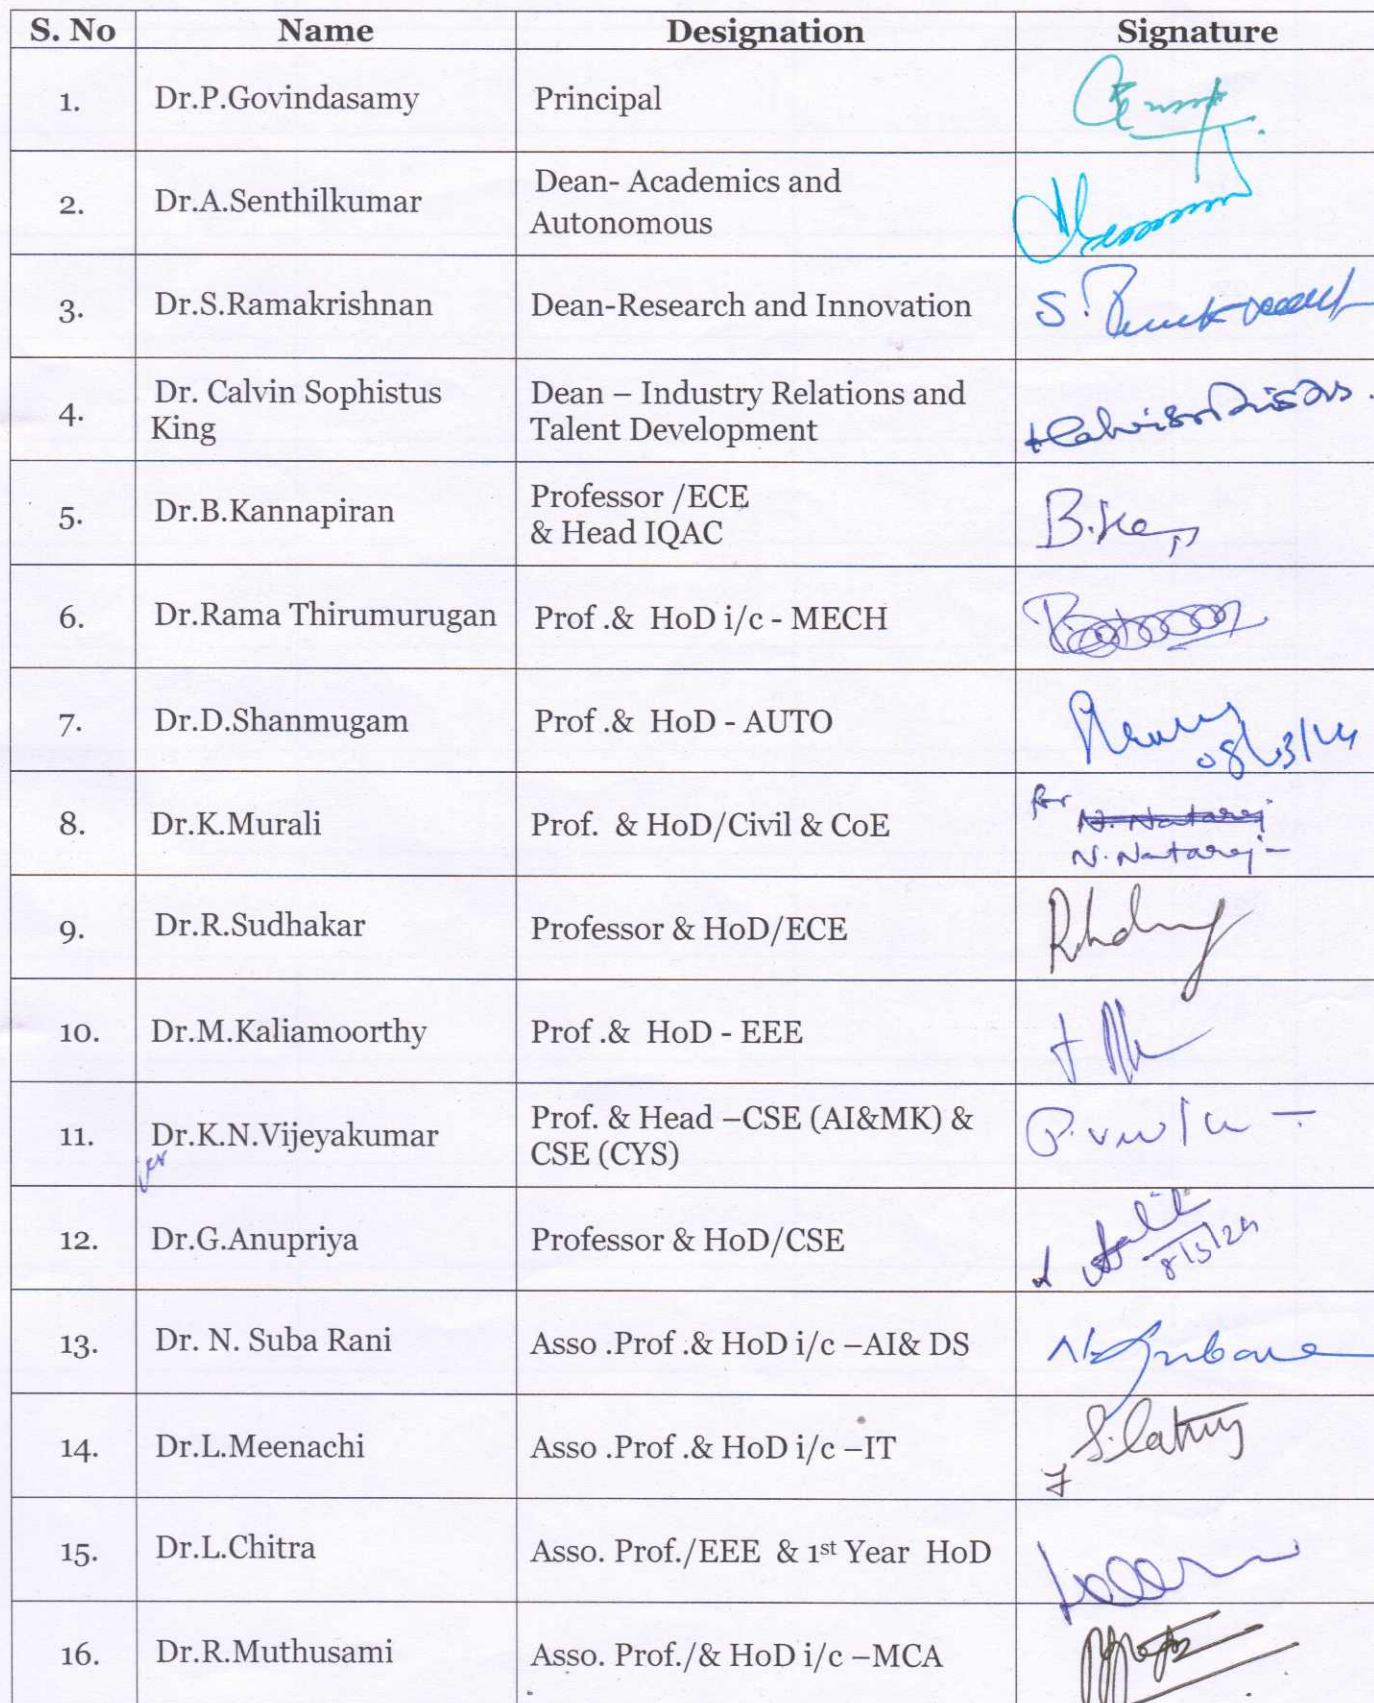 S. No Name Designation Signature
1. Dr.P.Govindasamy Principal
2. Dr.A.Senthilkumar Dean- Academics and
Autonomous
3. Dr.S.Ramakrishnan Dean-Research and Innovation S.
4. Dr. Calvin Sophistus
King
Dean – Industry Relations and
Talent Development
5. Dr.B.Kannapiran Professor /ECE
& Head IQAC
6. Dr.Rama Thirumurugan Prof .& HoD i/c - MECH
7. Dr.D.Shanmugam Prof .& HoD - AUTO
8. Dr.K.Murali Prof. & HoD/Civil & CoE for N. Nataraj
N. Nataraj
9. Dr.R.Sudhakar Professor & HoD/ECE
10. Dr.M.Kaliamoorthy Prof .& HoD - EEE
11. Dr.K.N.Vijeyakumar Prof. & Head –CSE (AI&MK) &
CSE (CYS)
for
12. Dr.G.Anupriya Professor & HoD/CSE
8/3/24
13. Dr. N. Suba Rani Asso .Prof .& HoD i/c –AI& DS
14. Dr.L.Meenachi Asso .Prof .& HoD i/c –IT
15. Dr.L.Chitra Asso. Prof./EEE & 1st Year HoD
16. Dr.R.Muthusami Asso. Prof./& HoD i/c –MCA